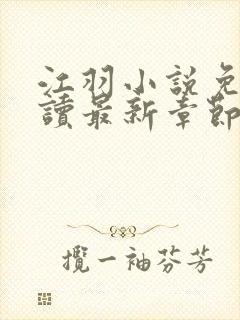 江羽小說免
讀最新章節
攬一袖芬芳